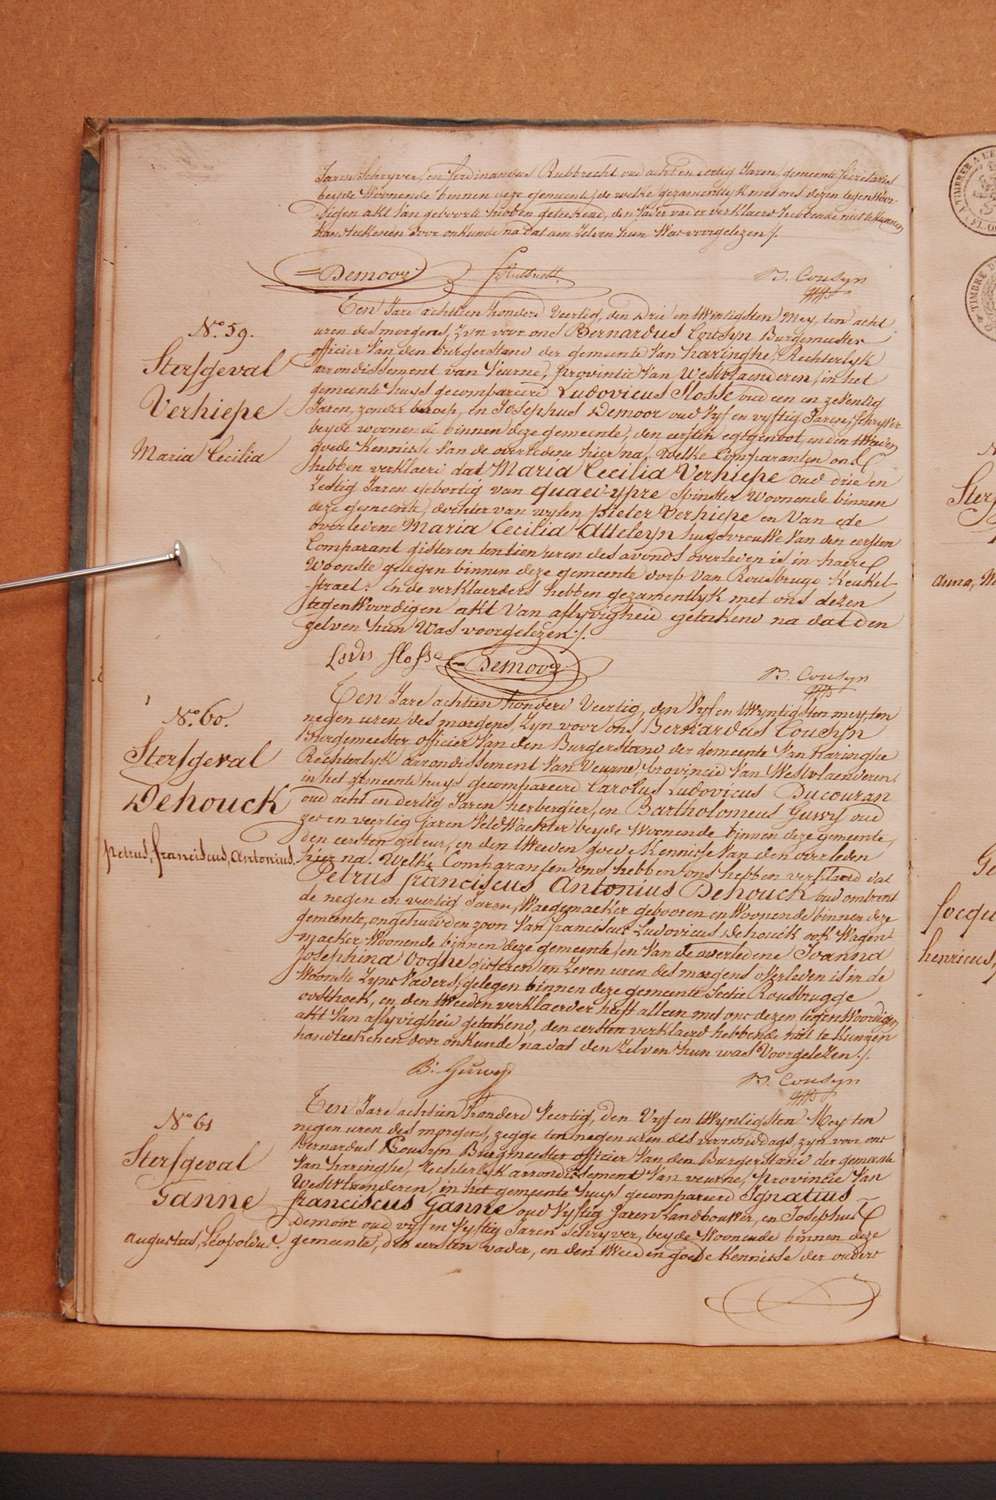 Jaren Schryver, en Ferdinandus Rubbrecht oud acht en veertig Jaren, gemeente Secretaris
beyde Woonende binnen deze gemeente, de welke gezamentlyk met ons dezen tegenwoor-
digen akt van geboorte hebben geteekend, den vader van er verklaert hebbende niet te kunnen
handteekenen door onkunde na dat aen zelven hun Was voorgelezen ./.
Demoor
F. Rubbrecht
B. Cousyn
N.º 59.
Sterfgeval
Verhiepe
Maria Cecilia
Een Jare achtien honderd Veertig, den Drie en twintigsten Mey, ten acht
uren des morgens, Zyn voor ons Bernardus Cousyn Burgemeester
officier Van den burgerstand der gemeente Van haringhe, Rechterlyk
arrondissement van Veurne, provintie Van Westvlaenderen, in het
gemeente huys gecompareerd Ludovicus Flosse oud een en zeventig
Jaren, zonder beroep, en Josephus Demoor oud Vyf en vyftig Jaren, Schryver
beyde woonende binnen deze gemeente, den eersten egtgenoot, en den tweeden
goede Kennisse Van de overledene hier na, Welke Comparanten ons
hebben verklaerd dat Maria Cecilia Verhiepe oud drie en
Zestig Jaren gebortig van quaed-ypre Spinster Woonende binnen
deze gemeente, dochter van wylen pieter Verhiepe en Van ede
overledene Maria Cecilia Atteleyn huysvrouwe Van den eersten
Comparant gisteren ten tien uren des avonds overleden is in haere
Wooniste gelegen binnen deze gemeente dorp van Rousbrugge Keukel-
straet. en de verklaerders hebben gezamentlyk met ons dezen
tegenwoordigen akt Van aflyvigheid geteekend na dat den
zelven hun Was voorgelezen ./.
Lovis flosse
Demoor
B. Cousyn
N.º 60.
Sterfgeval
Dehouck
petrus, franciscus, antonius.
Een Jare achtien honderd Veertig, den Vyf en twyntigsten mey, ten
negen uren des morgens, Zyn voor ons Bernardus Cousyn
Burgemeester officier Van den Burgerstand der gemeente Van Haringhe
Rechterlyk arrondissement Van Veurne, provincie Van Westvlaenderen
in het gemeente huys gecompareerd Carolus Ludovicus Ducouran
oud acht en dertig Jaren herbergier, en Bartholomeus Guwy oud
zes en veertig Jaren Veld Wachter beyde Woonende binnen deze gemeente
den eersten gebeur, en den tweeden goede Kennisse Van den overleden
hier na. Welke Comparanten ons hebben ons hebben verklaerd dat
Petrus franciscus Antonius Dehouck oud ontrent
de negen en vertig Jaren, Waegemaeker gebooren en Woonende binnen deze
gemeente, ongehuwden zoon Van franciscus Ludovicus Dehouck ook Wagen-
maeker, Woonende binnen deze gemeente, en Van de overledene Joanna
Josephina Ooghe gisteren ten Zeven uren des morgens overleden is in de
Wooniste Zyns Vaders, gelegen binnen deze gemeente Sectie Rousbrugge
oosthoek, en den tweeden verklaerder heeft alleen met ons dezen tegenwoordigen
akt Van aflyvigheid geteekend, den eersten verklaerd hebbende niet te kunnen
handteekenen door onkunde na dat den Zelven hun was Voorgelezen ./.
B: Guwy
B. Cousyn
N.º 61
Sterfgeval
Ganne
augustus, Leopoldus.
Een Jare achtien honderd Veertig, den Vyf en twyntigsten Mey ten
negen uren des morgens, zegge ten negen uren des voormiddags, zyn voor ons
Bernardus Cousyn Burgmeester officier Van den Burgerstand der gemeente
Van haringhe, Rechterlyk arrondissement Van veurne, provintie Van
Westvlaenderen, in het gemeente huys gecompareerd Ignatius
franciscus Ganne oud Vyftig Jaren Landbouwer, en Josephus
demoor oud vyf en Vyftig Jaren Schryver, beyde Woonende binnen deze
gemeente, den eersten vader, en den tweeden goede Kennisse der ouders
Sterf
anna, M
Ge
Jocqu
henricus,